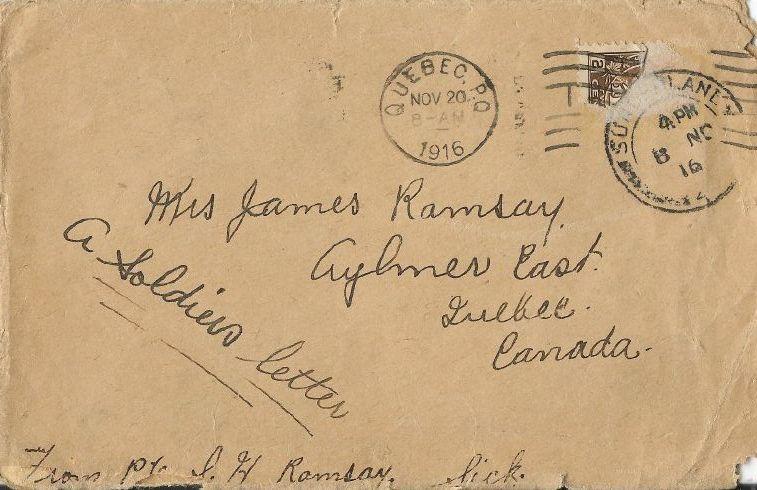 QUEBEC, P.Q.
NOV 20
8-AM
1916
4 PM
8 NO
16
Mrs James Ramsay.
Aylmer East.
Quebec.
Canada.
A Soldiers letter
From Pte. Ramsay.